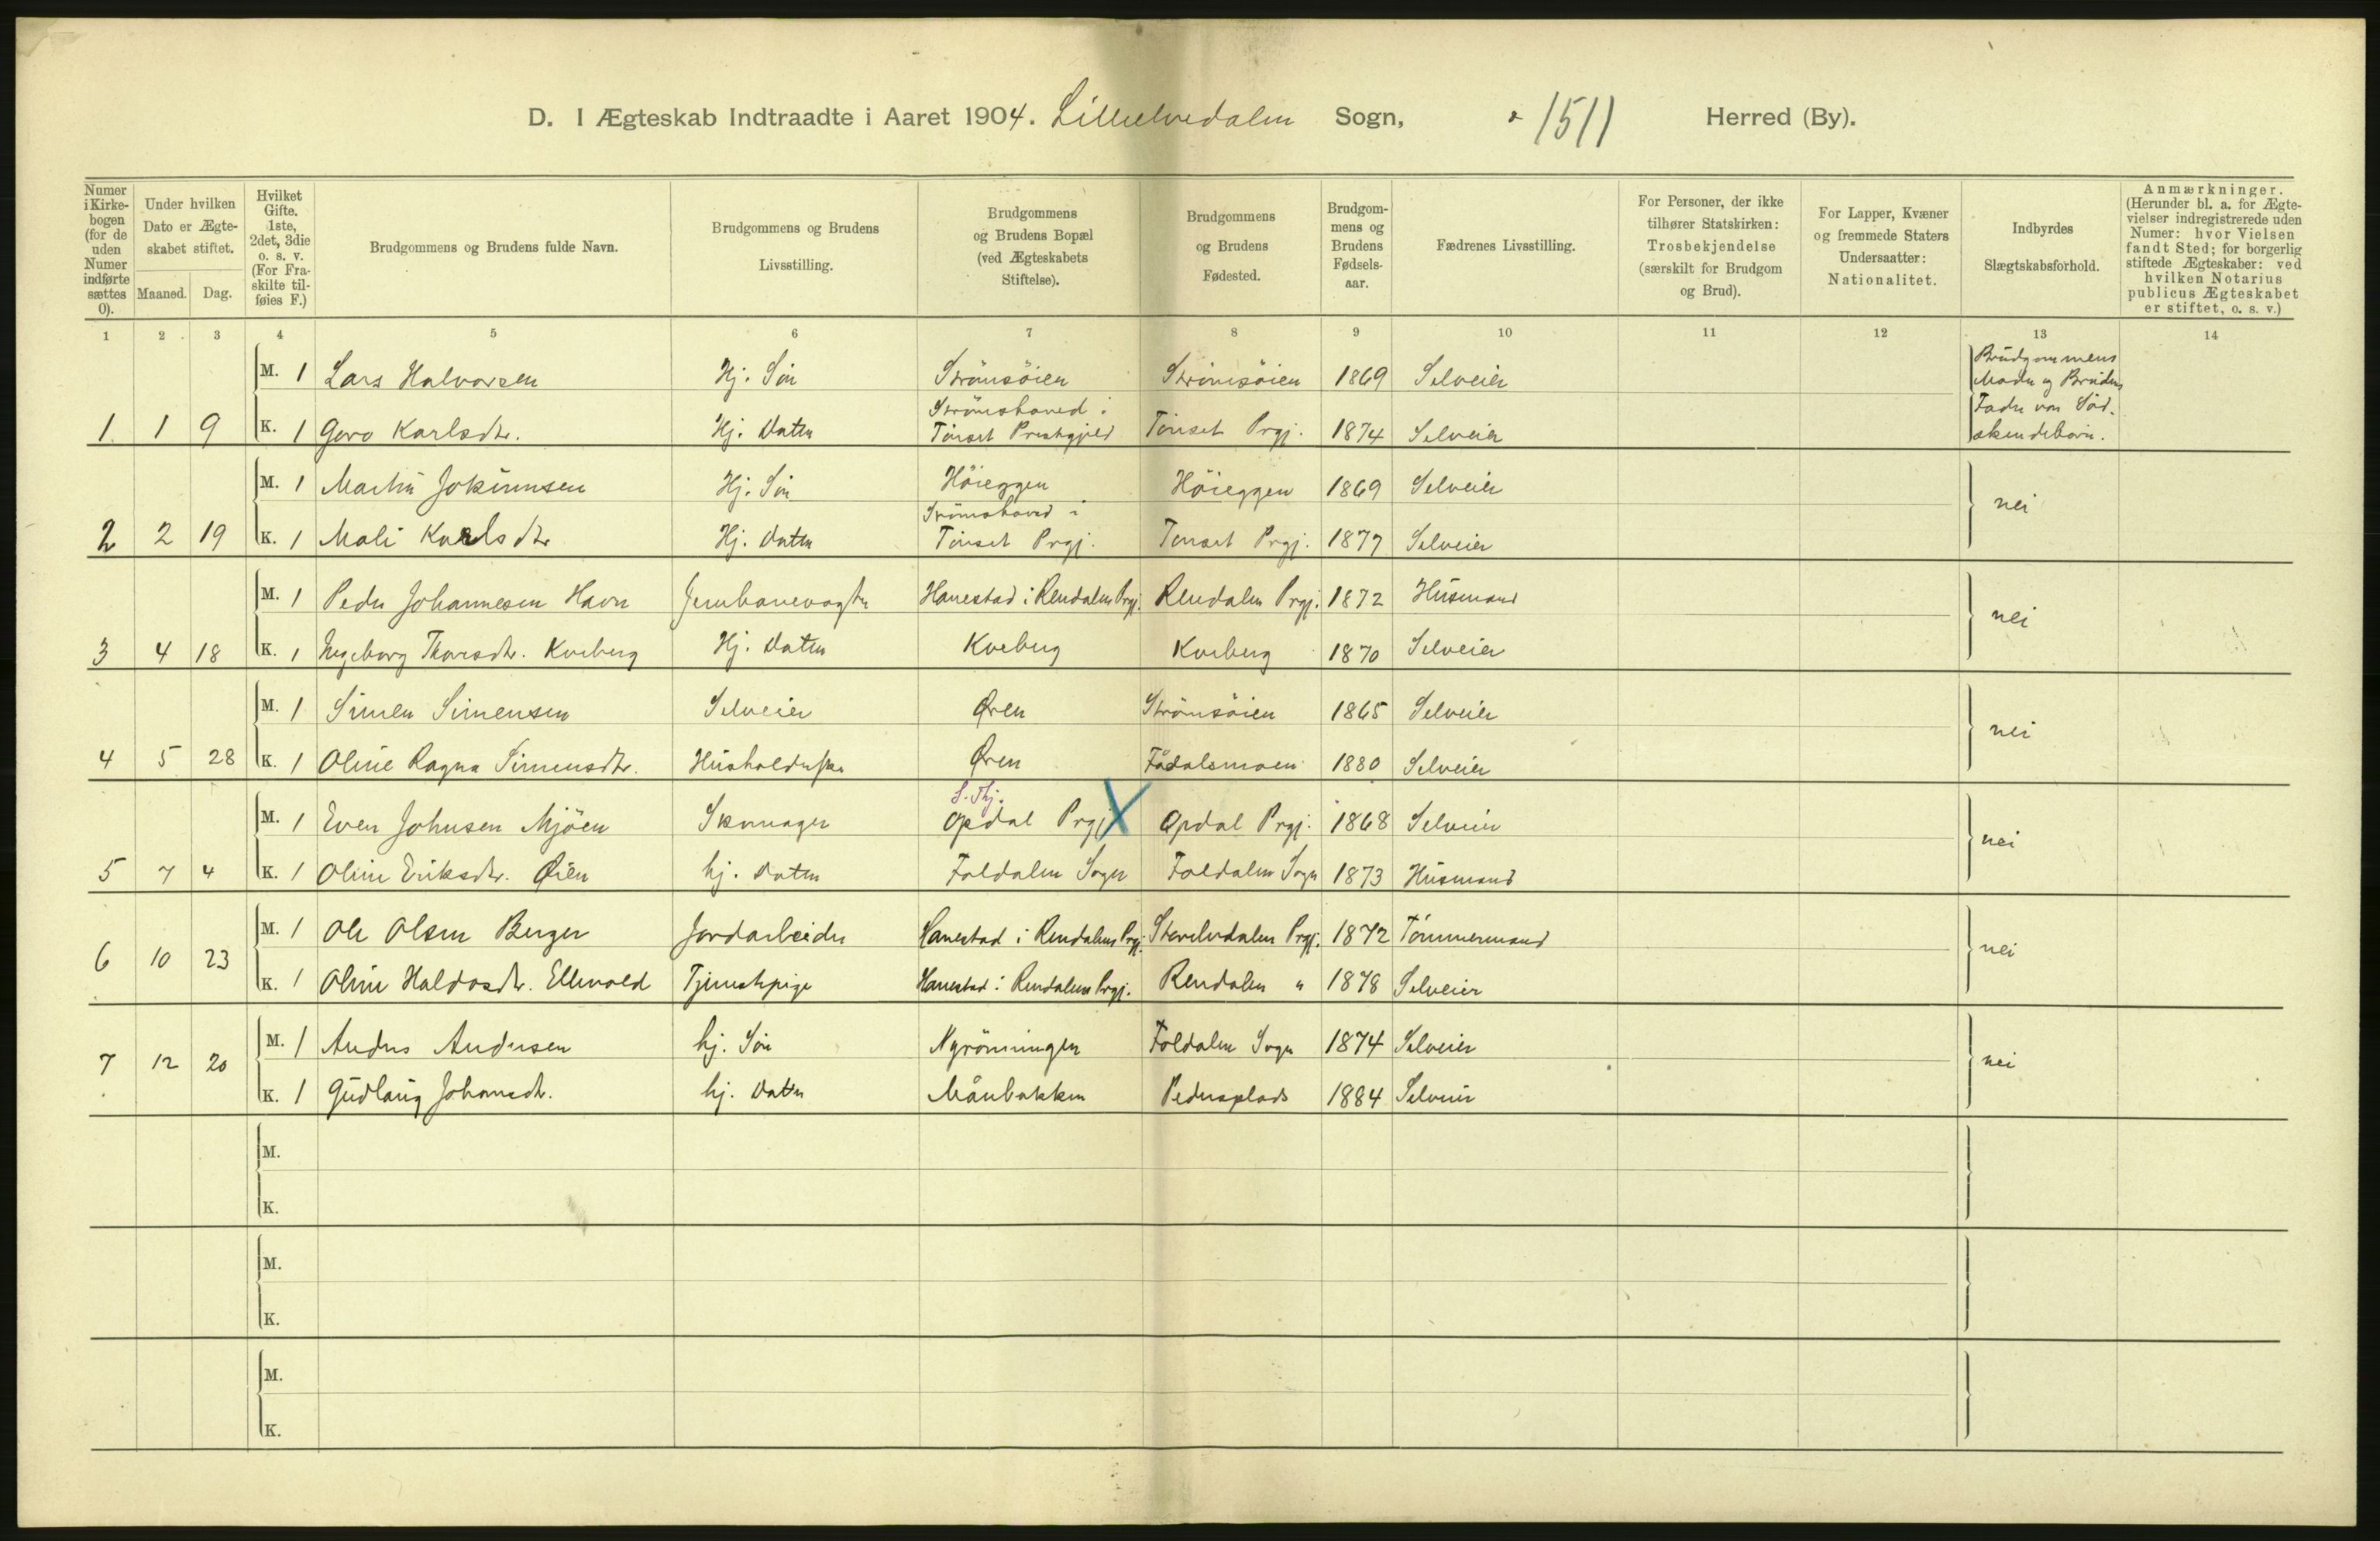 D. I Ægteskab Indtraadte i Aaret 1904. Lilleelvedalen Sogn, 1511 Herred (By).
Numer i Kirkebogen (for de uden Numer indførte sættes 0).
Under hvilken Dato er Ægteskabet stiftet.
Maaned. Dag.
Hvilket Gifte. 1ste, 2det, 3die o. s. v. (For Fraskilte tilføies F.)
Brudgommens og Brudens fulde Navn.
Brudgommens og Brudens Livsstilling.
Brudgommens og Brudens Bopæl (ved Ægteskabets Stiftelse).
Brudgommens og Brudens Fødested.
Brudgommens og Brudens Fødselsaar.
Fædrenes Livsstilling.
For Personer, der ikke tilhører Statskirken: Trosbekjendelse (særskilt for Brudgom og Brud).
For Lapper, Kvæner og fremmede Staters Undersaatter: Nationalitet.
Indbyrdes Slægtskabsforhold.
Anmærkninger. (Herunder bl. a. for Ægtevielser indregistrerede uden Numer: hvor Vielsen fandt Sted; for borgerlig stiftede Ægteskaber: ved hvilken Notarius publicus Ægteskabet er stiftet, o. s. v.)
1 2 3 4 5 6 7 8 9 10 11 12 13 14
M. 1 Lars Halvorsen Hj. Søn Strömsöien Strömsöien 1869 Selveier Brudgommens Moder og Brudens
1 1 9 K. 1 Goro Karlsdtr. Hj. Datter Strömshoved i Tönset Prestegjeld Tönset Prgj. 1874 Selveier Fader var Sødskendebørn.
M. 1 Martin Jokumsen Hj. Søn Höieggen Höieggen 1869 Selveier
nei
2 2 19 K. 1 Mali Karlsdtr Hj. Datter Strömshoved i Tönset Prgj. Tönset Prgj. 1877 Selveier
M. 1 Peder Johannesen Havn Jernbanevogter Hanestad i Rendalen Prgj. Rendalen Prgj. 1872 Husmand
nei
3 4 18 K. 1 Ingeborg Thorsdtr. Kveberg Hj. Datter Kveberg Kveberg 1870 Selveier
M. 1 Simen Simensen Selveier Øren Strömsöien 1865 Selveier
nei
4 5 28 K. 1 Oline Ragna Simensdtr. Husholderske Øren Fådalsmoen 1880 Selveier
M. 1 Even Johnsen Mjöen Skomager S. Thj. Opdal Prgj X Opdal Prgj. 1868 Selveier
nei
5 7 4 K. 1 Oline Eriksdtr. Øien hj. Datter Foldalen Sogn Foldalen Sogn 1873 Husmand
M. 1 Ole Olsen Berger Jordarbeider Hanestad i Rendalens Prgj. Storelvdalen Prgj. 1872 Tömmermand
6 10 23 nei
K. 1 Oline Haldosdtr. Ellevold Tjenestepige Hanestad i Rendalens Prgj. Rendalen " 1878 Selveier
M. 1 Anders Andersen hj. Søn Nyrönningen Foldalen Sogn 1874 Selveier
7 12 20 nei
K. 1 Gudlaug Johansdtr. hj. Datter Månbakken Pedersplads 1884 Selveier
M.
K.
M.
K.
M.
K.